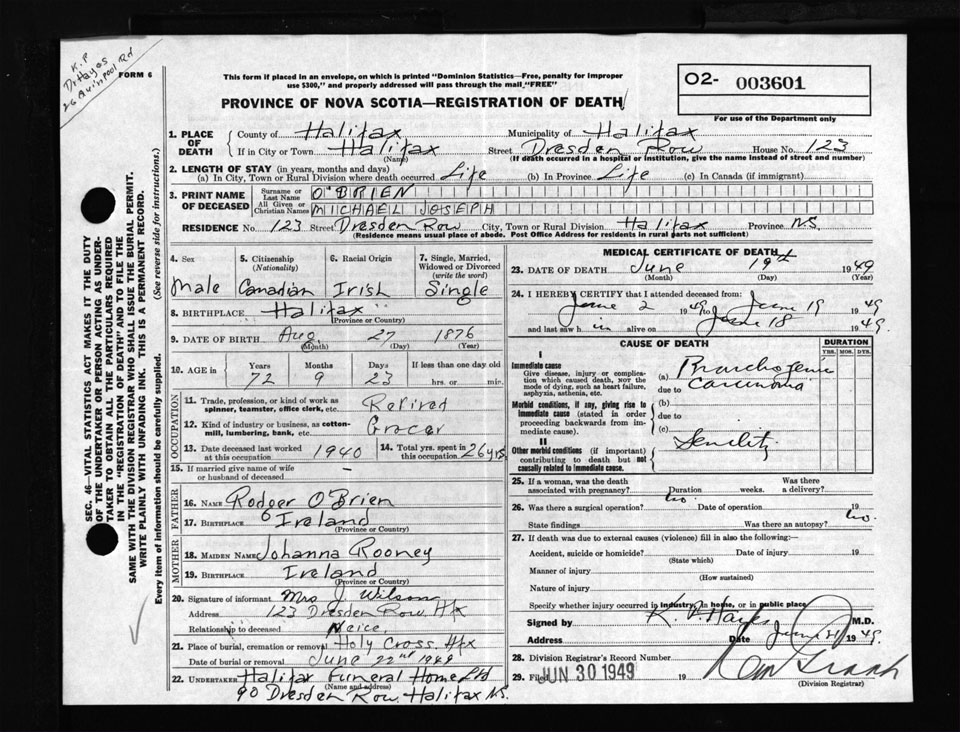 K.P
Dr Hayes
26 Quinpool Rd
FORM 6
This form if placed in an envelope, on which is printed "Dominion Statistics—Free, penalty for improper
use $300," and properly addressed will pass through the mail "FREE"
PROVINCE OF NOVA SCOTIA—REGISTRATION OF DEATH
O2- 003601
For use of the Department only
1. PLACE OF DEATH
County of Halifax Municipality of Halifax
If in City or Town Halifax Street Dresden Row House No. 123
(Name) (If death occurred in a hospital or institution, give the name instead of street and number)
2. LENGTH OF STAY (in years, months and days)
(a) In City, Town or Rural Division where death occurred Life (b) In Province Life (c) In Canada (if immigrant)
3. PRINT NAME OF DECEASED
Surname or Last Name O'BRIEN
All Given or Christian Names MICHAEL JOSEPH
RESIDENCE No. 123 Street Dresden Row City, Town or Rural Division Halifax Province N.S.
(Residence means usual place of abode. Post Office Address for residents in rural parts not sufficient)
4. Sex
Male
5. Citizenship (Nationality)
Canadian
6. Racial Origin
Irish
7. Single, Married, Widowed or Divorced (write the word)
Single
8. BIRTHPLACE Halifax
(Province or Country)
9. DATE OF BIRTH Aug. 27 1876
(Month) (Day) (Year)
10. AGE in Years Months Days If less than one day old
72 9 23 hrs. or min.
OCCUPATION
11. Trade, profession, or kind of work as spinner, teamster, office clerk, etc. Retired
12. Kind of industry or business, as cotton-mill, lumbering, bank, etc. Grocer
13. Date deceased last worked at this occupation 1940
14. Total yrs. spent in this occupation 26 yrs.
15. If married give name of wife or husband of deceased –
FATHER
16. NAME Rodger O'Brien
17. BIRTHPLACE Ireland
(Province or Country)
MOTHER
18. MAIDEN NAME Johanna Rooney
19. BIRTHPLACE Ireland
(Province or Country)
20. Signature of informant Mrs J. Wilson
Address 123 Dresden Row Hfx
Relationship to deceased Neice
21. Place of burial, cremation or removal Holy Cross Hfx
Date of burial or removal June 22nd 1949
22. UNDERTAKER Halifax Funeral Home Ltd
(Name and address)
90 Dresden Row Halifax N.S.
MEDICAL CERTIFICATE OF DEATH
23. DATE OF DEATH June 19th 1949
(Month) (Day) (Year)
24. I HEREBY CERTIFY that I attended deceased from:
June 2 1949 to June 19 1949
and last saw h im alive on June 18 1949.
CAUSE OF DEATH
DURATION
YRS. MOS. DYS.
I
Immediate cause
Give disease, injury or complication which caused death, not the mode of dying, such as heart failure, asphyxia, asthenia, etc.
(a) Bronchogenic
due to Carcinoma
Morbid conditions, if any, giving rise to immediate cause (stated in order proceeding backwards from immediate cause).
(b)
due to
(c)
II
Other morbid conditions (if important) contributing to death but not causally related to immediate cause.
Senility
25. If a woman, was the death associated with pregnancy? Duration weeks. Was there a delivery?
26. Was there a surgical operation? no. Date of operation 19
State findings Was there an autopsy? no.
27. If death was due to external causes (violence) fill in also the following:
Accident, suicide or homicide? Date of injury 19
(State which)
Manner of injury
(How sustained)
Nature of injury
Specify whether injury occurred in industry, in home, or in public place
Signed by K. P. Hayes M.D.
Address Date June 21 1949.
28. Division Registrar's Record Number
29. Filed JUN 30 1949 19
(Division Registrar)
SEC. 46—VITAL STATISTICS ACT MAKES IT THE DUTY
OF THE UNDERTAKER OR PERSON ACTING AS UNDER-
TAKER TO OBTAIN ALL THE PARTICULARS REQUIRED
IN THE "REGISTRATION OF DEATH" AND TO FILE THE
SAME WITH THE DIVISION REGISTRAR WHO SHALL ISSUE THE BURIAL PERMIT.
WRITE PLAINLY WITH UNFADING INK. THIS IS A PERMANENT RECORD.
Every item of information should be carefully supplied. (See reverse side for instructions.)